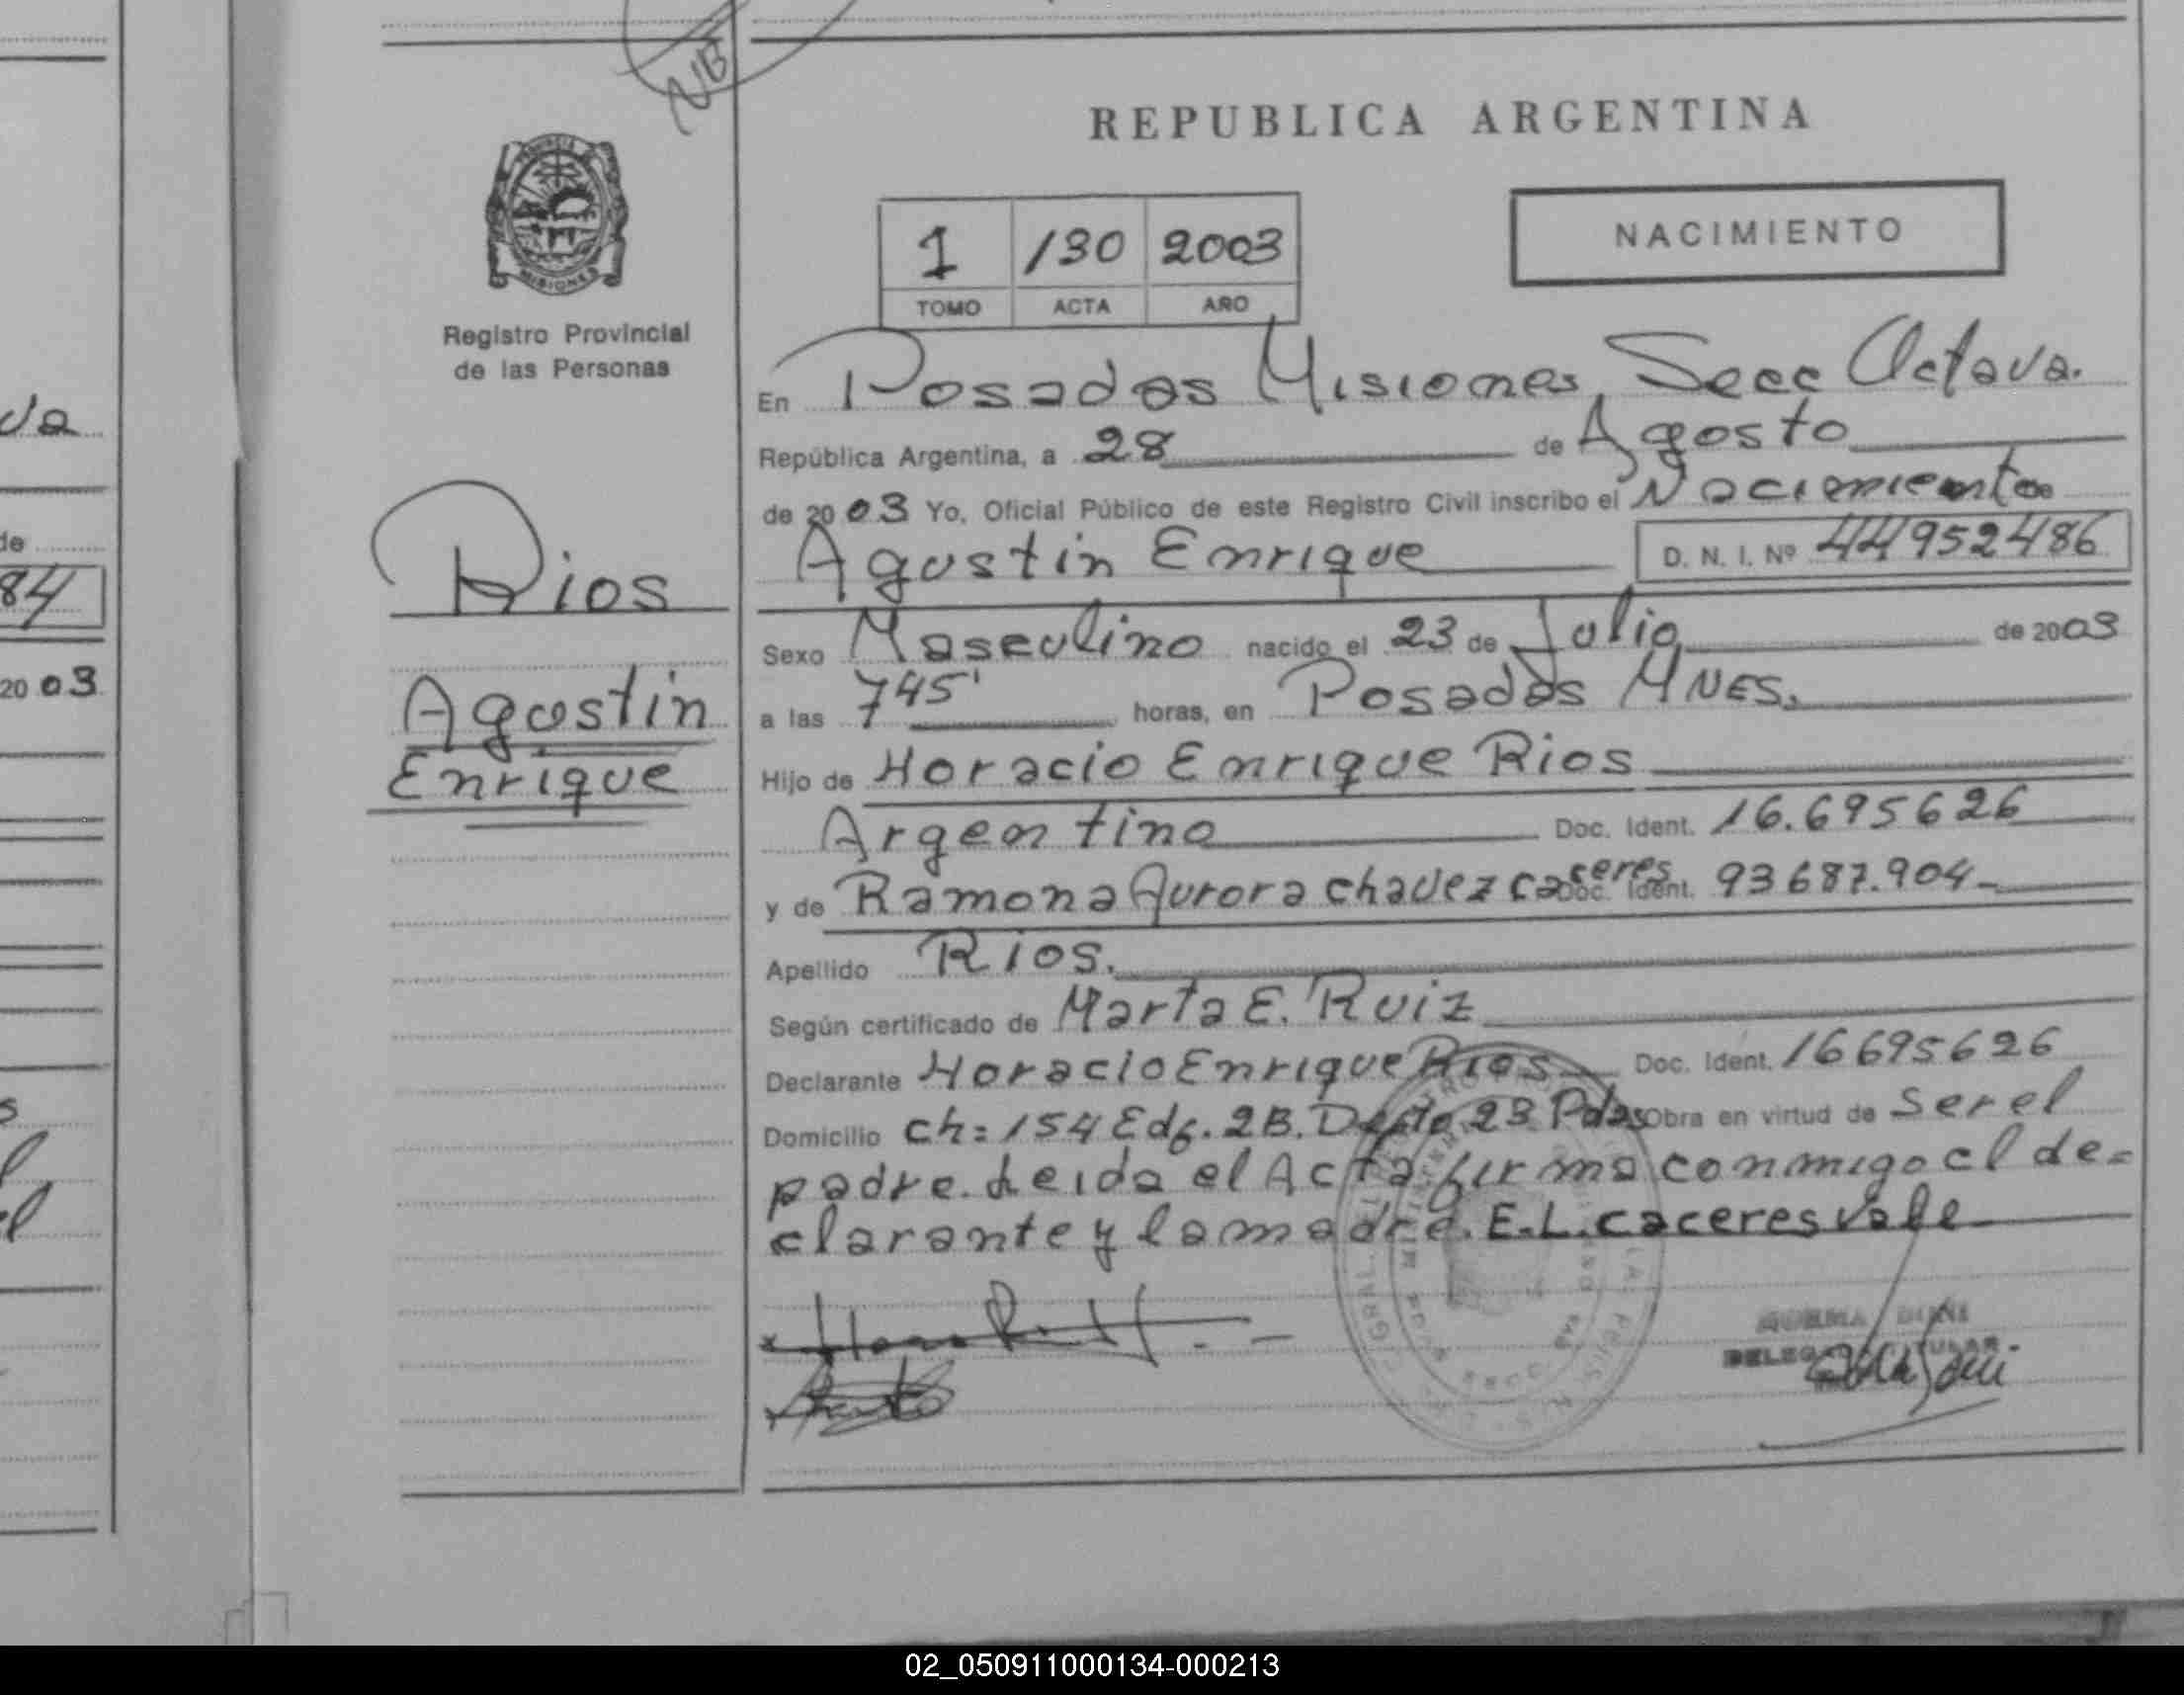 NB
REPUBLICA ARGENTINA
NACIMIENTO
1 130 2003
TOMO ACTA AÑO
MISIONES
Registro Provincial
de las Personas
En Posadas Misiones, Secc Octava.
República Argentina, a 28 de Agosto
de 2003 Yo, Oficial Público de este Registro Civil inscribo el Nacimiento
Agustin Enrique D. N. I. Nº 44952486
Rios
Agustin
Enrique
Sexo Masculino nacido el 23 de Julio de 2003
a las 745' horas, en Posadas MNES.
Hijo de Horacio Enrique Rios
Argentino Doc. Ident. 16.695626
y de Ramona Aurora chavez caseres Doc. Ident. 93687.904-
Apellido Rios.
Según certificado de Marta E. Ruiz
Declarante Horacio Enrique Rios Doc. Ident. 16695626
Domicilio ch: 154 Edf. 2B. Depto 23 Pdas Obra en virtud de Ser el
padre. Leida el Acta firma conmigo el de=
clarante y la madre. E.L. caceres vale
va
de
84
2003
02_050911000134-000213